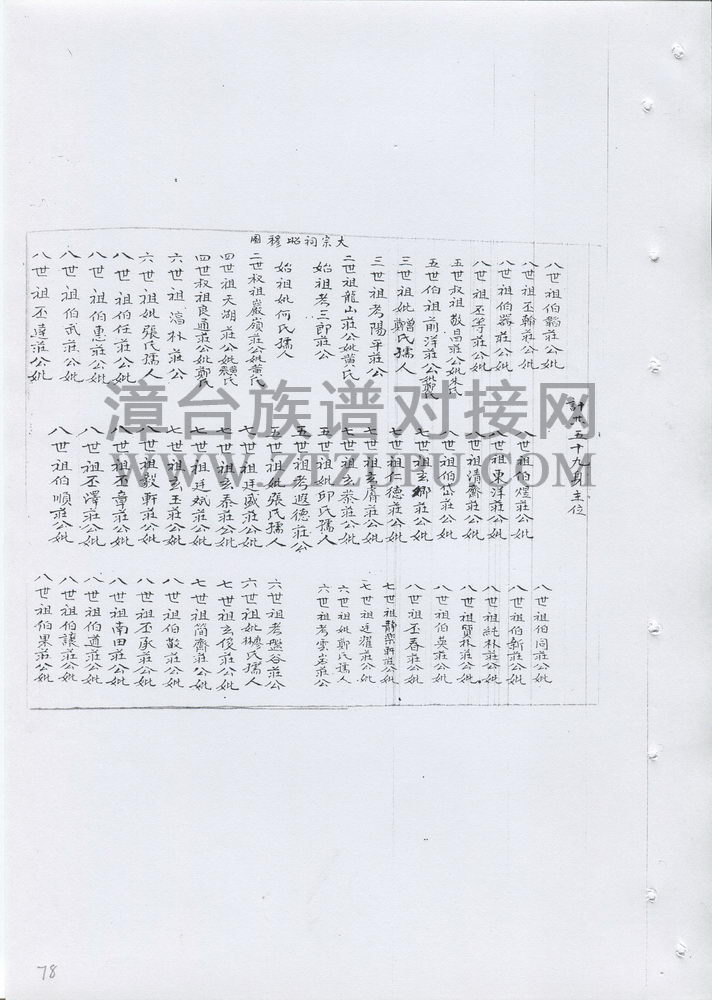 大宗祠昭穆圖
計共五十九身主位
八世祖伯韜莊公妣
八世祖丕翰莊公妣
八世祖伯器莊公妣
八世祖丕等莊公妣
五世叔祖敬昌莊公妣朱氏
五世伯祖前洋莊公妣鄭氏
三世祖妣鄭氏孺人
三世祖考陽平莊公
二世祖龍山莊公妣黄氏
始祖考三郎莊公
始祖妣何氏孺人
二世叔祖嚴嶺莊公妣黄氏
四世祖天湖莊公妣
四世叔祖良通莊公妣鄭氏
六世祖滈朴莊公
六世祖妣張氏孺人
八世祖伯任莊公妣
八世祖伯惠莊公妣
八世祖伯武莊公妣
八世祖丕達莊公妣
八世祖伯煜莊公妣
八世祖東洋莊公妣
八世祖清齋莊公妣
八世祖伯岱莊公妣
七世祖玄鄉莊公妣
七世祖仁德莊公妣
七世祖玄膺莊公妣
七世祖玄恭莊公妣
五世祖妣邱氏孺人
五世祖考遐德莊公
五世祖妣張氏孺人
七世祖廷盛莊公妣
七世祖玄泰莊公妣
七世祖廷斌莊公妣
七世祖玄玉莊公妣
七世祖毅軒莊公妣
八世祖丕章莊公妣
八世祖丕澤莊公妣
八世祖伯順莊公妣
八世祖伯同莊公妣
八世祖伯新莊公妣
八世祖純朴莊公妣
八世祖質林莊公妣
八世祖伯英莊公妣
八世祖丕春莊公妣
七世祖靜樂軒莊公妣
七世祖廷濯莊公妣
六世祖妣鄭氏孺人
六世祖考雲岩莊公
六世祖考盤谷莊公
六世祖妣林氏孺人
七世祖玄俊莊公妣
七世祖簡齋莊公妣
八世祖伯敬莊公妣
八世祖丕承莊公妣
八世祖南田莊公妣
八世祖伯道莊公妣
八世祖伯讓莊公妣
八世祖伯果莊公妣
漳台族谱对接网
WWW.ZTZUPU.COM
78